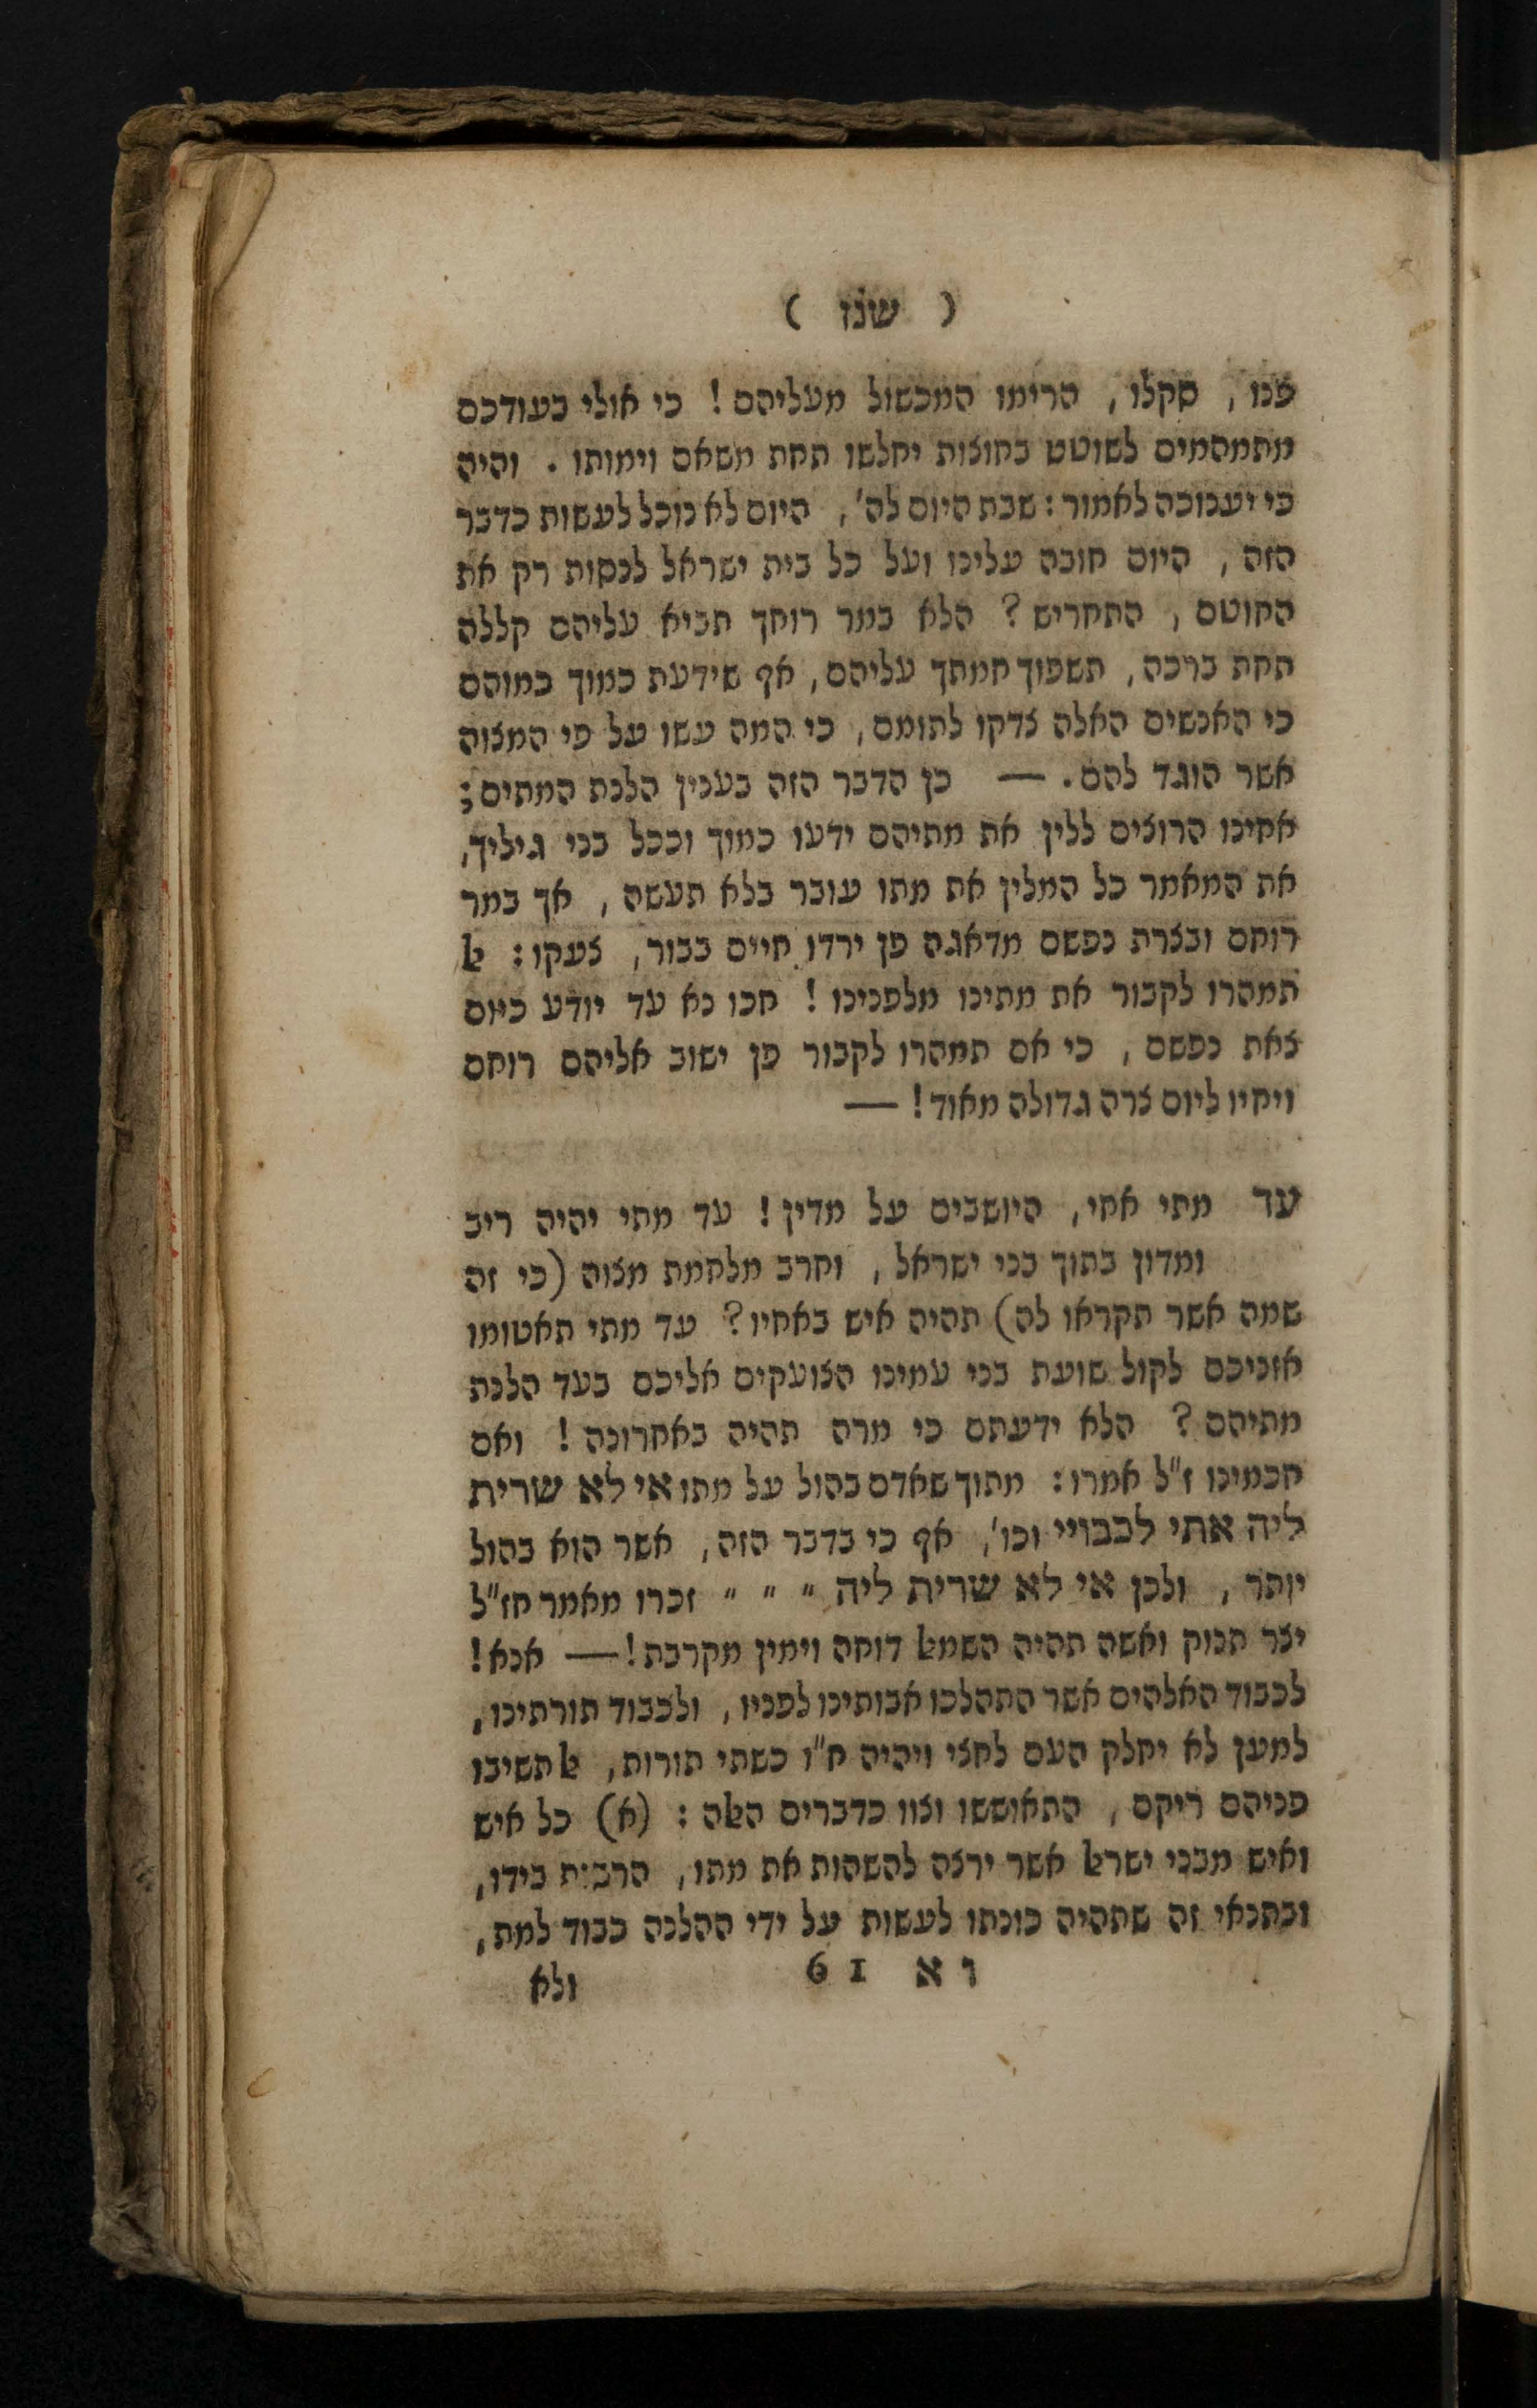 ( שנז )
פנו, סקלו, הרימו המכשול מעליהם! כי אולי בעודכם
מתמהמים לשוטט בחוצות יחלשו תחת משאם וימותו. והיה
כי יענוכה לאמור: שבת היום לה', היום לא נוכל לעשות כדבר
הזה, היום חובה עלינו ועל כל בית ישראל לכסות רק את
החוטם, התחריש? הלא במר רוחך תביא עליהם קללה
תחת ברכה, תשפוך חמתך עליהם, אף שידעת כמוך כמוהם
כי האנשים האלה צדקו לתומם, כי המה עשו על פי המצוה
אשר הוגד להם. — כן הדבר הזה בענין הלנת המתים;
אחינו הרוצים ללין את מתיהם ידעו כמוך וככל בני גיליך,
את המאמר כל המלין את מתו עובר בלא תעשה, אך במר
רוחם ובצרת נפשם מדאגה פן ירדו חיים בבור, צעקו: ﭏ
תמהרו לקבור את מתינו מלפנינו! חכו נא עד יודע כיום
צאת נפשם, כי אם תמהרו לקבור פן ישוב אליהם רוחם
ויחיו ליום צרה גדולה מאוד! —
עד מתי אחי, היושבים על מדין! עד מתי יהיה ריב
ומדון בתוך בני ישראל, וחרב מלחמת מצוה (כי זה
שמה אשר תקראו לה) תהיה איש באחיו? עד מתי תאטומו
אזניכם לקול שועת בני עמינו הצועקים אליכם בעד הלנת
מתיהם? הלא ידעתם כי מרה תהיה באחרונה! ואם
חכמינו ז"ל אמרו: מתוך שאדם בהול על מתו אי לא שרית
ליה אתי לכבויי וכו', אף כי בדבר הזה, אשר הוא בהול
יותר, ולכן אי לא שרית ליה " " " זכרו מאמר חז"ל
יצר תנוק ואשה תהיה השמﭏ דוחה וימין מקרבת! — אנא!
לכבוד האלהים אשר התהלכו אבותינו לפניו, ולכבוד תורתינו,
למען לא יחלק העם לחצי ויהיה ח"ו כשתי תורות, ﭏ תשיבו
פניהם ריקם, התאוששו וצוו כדברים הﭏה: (א) כל איש
ואיש מבני ישרﭏ אשר ירצה להשהות את מתו, הרבית בידו,
ובתנאי זה שתהיה כונתו לעשות על ידי ההלנה כבוד למת,
ו א 61
ולא